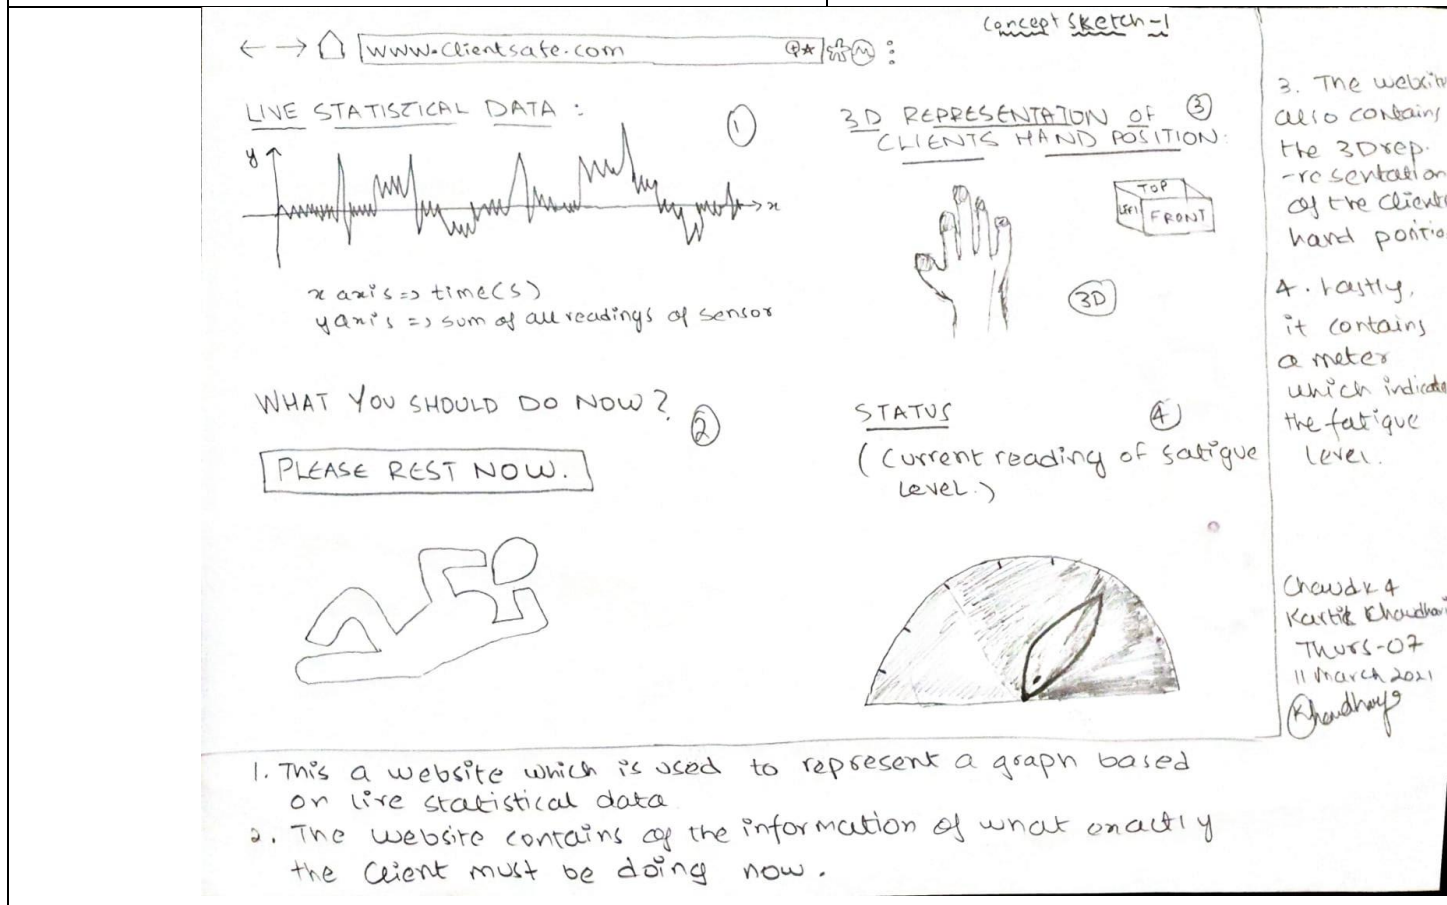 Concept Sketch-1
www.clientsafe.com
LIVE STATISTICAL DATA :
1
y
x
x axis => time(s)
y axis => sum of all readings of sensor
WHAT YOU SHOULD DO NOW?
2
PLEASE REST NOW.
3D REPRESENTATION OF
3
CLIENTS HAND POSITION:
TOP
LEFT
FRONT
3D
STATUS
4
(Current reading of satigue
level.)
3. The website
also contains
the 3D rep-
-resentation
of the clients
hand positio
4. Lastly,
it contains
a meter
which indicate
the fatigue
level.
Chawdk4
Kartik Khaudhari
Thurs-07
11 March 2021
1. This a website which is used to represent a graph based
on live statistical data
2. The website contains of the information of what exactly
the client must be doing now.